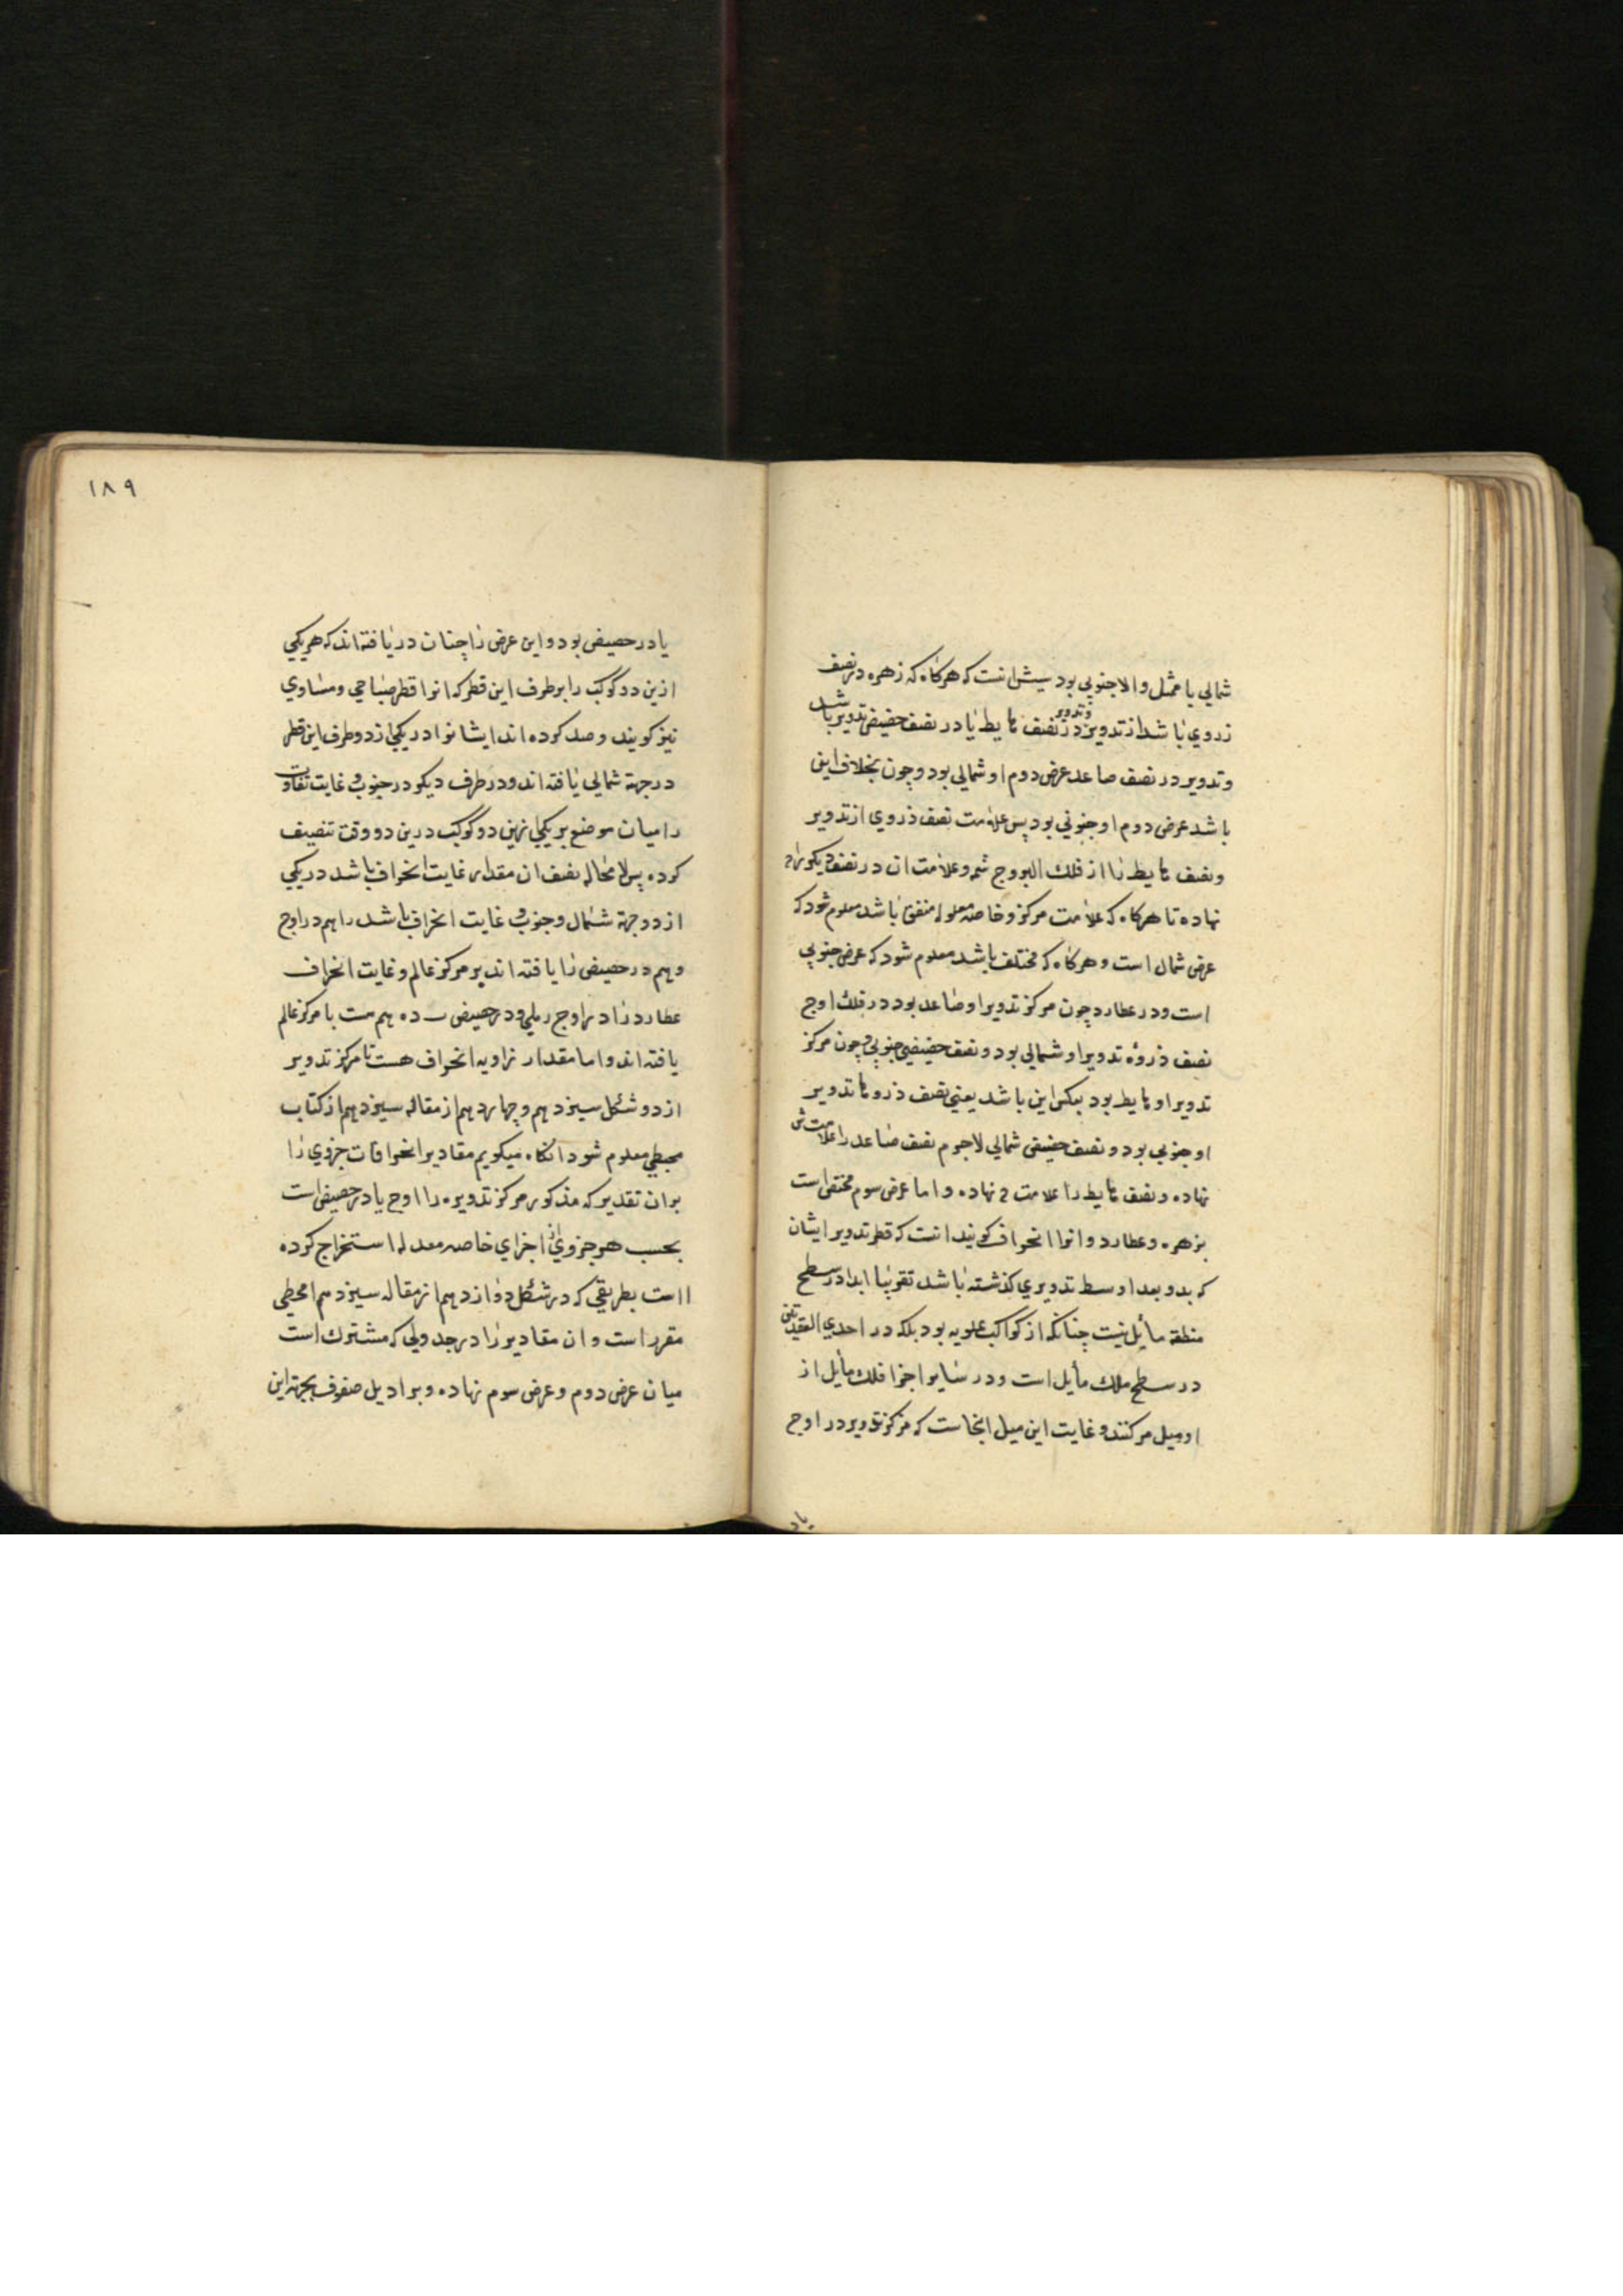 شمالي با ممثل والا جنوبي بود سيش انست که هرکاه که زهره در نصف
ذروي باشد از تدوير و تدوير در نصف هابط يا در نصف حضيض تدوير باشد
و تدوير در نصف صاعد عرض دوم او شمالي بود و چون بخلاف اين
باشد عرض دوم او جنوبي بود پس علامت نصف ذروي از تدوير
و نصف هابط را از فلك البروج شه و علامت ان در نصف ديکر را
نهاده تا هرکاه که علامت مرکز و خاصه معدله متفق باشد معلوم شود که
عرض شمال است و هرکاه که مختلف باشد معلوم شود که عرض جنوبي
است و در عطارد چون مرکز تدوير او صاعد بود در فلك اوج
نصف ذروه تدوير او شمالي بود و نصف حضيضي جنوبي و چون مرکز
تدوير او هابط بود بعکس اين باشد يعني نصف ذروه تدوير
او جنوبي بود و نصف حضيضي شمالي لاجرم نصف صاعد را علامت ش
نهاده و نصف هابط را علامت نهاده و اما عرض سوم مختص است
بزهره و عطارد و انرا انحراف کويند انست که قطر تدوير ايشان
که بدو بعد اوسط تدويري کذشته باشد تقريبا ابدا در سطح
منطقه مايل نيست چنانکه از کواکب علويه بود بلکه در احدي العقدتين
در سطح فلك مايل است و در ساير اجزا فلك مايل از
او ميل مرکند و غايت اين ميل انجاست که مرکز تدوير در اوج
يا د
١٨٩
يا در حضيض بود و اين عرض را چنان دريافته اند که هريکي
ازين دو کوکب را بر طرف اين قطر که انرا قطر صباحي و مساوي
نيز کويند رصد کرده اند ايشانرا در يکي از دو طرف اين قطر
در جهة شمالي يافته اند و در طرف ديکر در جنوب و غايت تفاوت
را ميان موضع هريکي ازين دو کوکب درين دو وقت تنصيف
کرده پس لا محاله نصف ان مقدار غايت انحراف باشد در يکي
از دو جهة شمال و جنوب و غايت انحراف باشد را هم در اوج
و هم در حضيض را يافته اند بر مرکز عالم و غايت انحراف
عطارد را در اوج و در حضيض ده هم ست با مرکز عالم
يافته اند و اما مقدار زاويه انحراف هست با مرکز تدوير
از دو شکل سيزدهم و چهاردهم از مقاله سيزدهم از کتاب
مجسطي معلوم شود انکاه ميکويم مقادير انحرافات جزوي را
بران تقدير که مذکور مرکز تدويره را اوج يا در حضيض است
بحسب هر جزوي از اجزاي خاصه معدله استخراج کرده
است بطريقي که در شکل دوازدهم از مقاله سيزدهم مجسطي
مقرر است و ان مقادير را در جدولي که مشترك است
ميان عرض دوم و عرض سوم نهاده و برا ديل صفوف بجهة اين